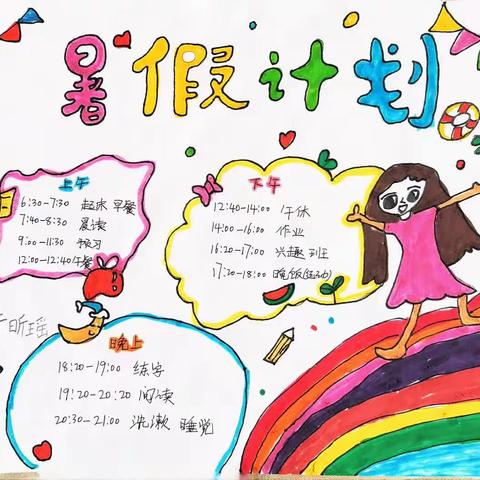 暑假计划
上午
6:30-7:30 起床 早餐
7:40-8:30 晨读
9:00-11:30 预习
12:00-12:40 午餐
下午
12:40-14:00 午休
14:00-16:00 作业
16:20-17:00 兴趣班
17:20-18:00 晚饭(运动)
昕瑶
晚上
18:20-19:00 练字
19:20-20:20 阅读
20:30-21:00 洗漱 睡觉